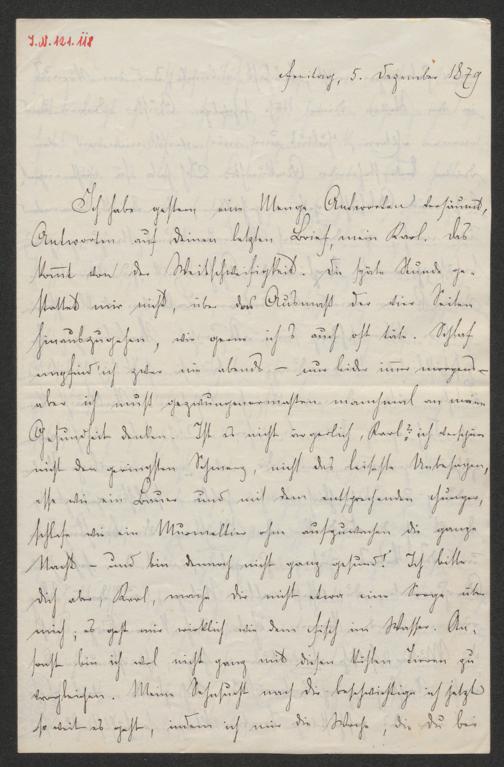 I.N. 121.118
Freitag, 5. Dezember 1879
Ich habe gestern eine Menge Antworten versäumt,
Antworten auf deinen letzten Brief, mein Karl. Das
kommt von der Weitschweifigkeit. Die späte Stunde ge-
stattet mir nicht, über das Ausmaß der vier Seiten
hinauszugehen, wie gerne ich's auch oft täte. Schlaf
empfind' ich zwar nie abends – nur leider immer morgens –
aber ich muß gezwungenermaßen manchmal an meine
Gesundheit denken. Ist es nicht ärgerlich, Karl? ich verspüre
nicht den geringsten Schmerz, nicht das leiseste Unbehagen,
esse wie ein Bauer und mit dem entsprechenden Hunger,
schlafe wie ein Murmelthier ohne aufzuwachen die ganze
Nacht – und bin dennoch nicht ganz gesund! Ich bitte
dich aber, Karl, mache dir nicht etwa eine Sorge über
mich; es geht mir wirklich wie dem Fisch im Wasser. An-
sonst bin ich wol nicht ganz mit diesen kühlen Tieren zu
vergleichen. Meine Sehnsucht nach dir beschwichtige ich jetzt
so weit es geht, indem ich mir die Woche, die du bei